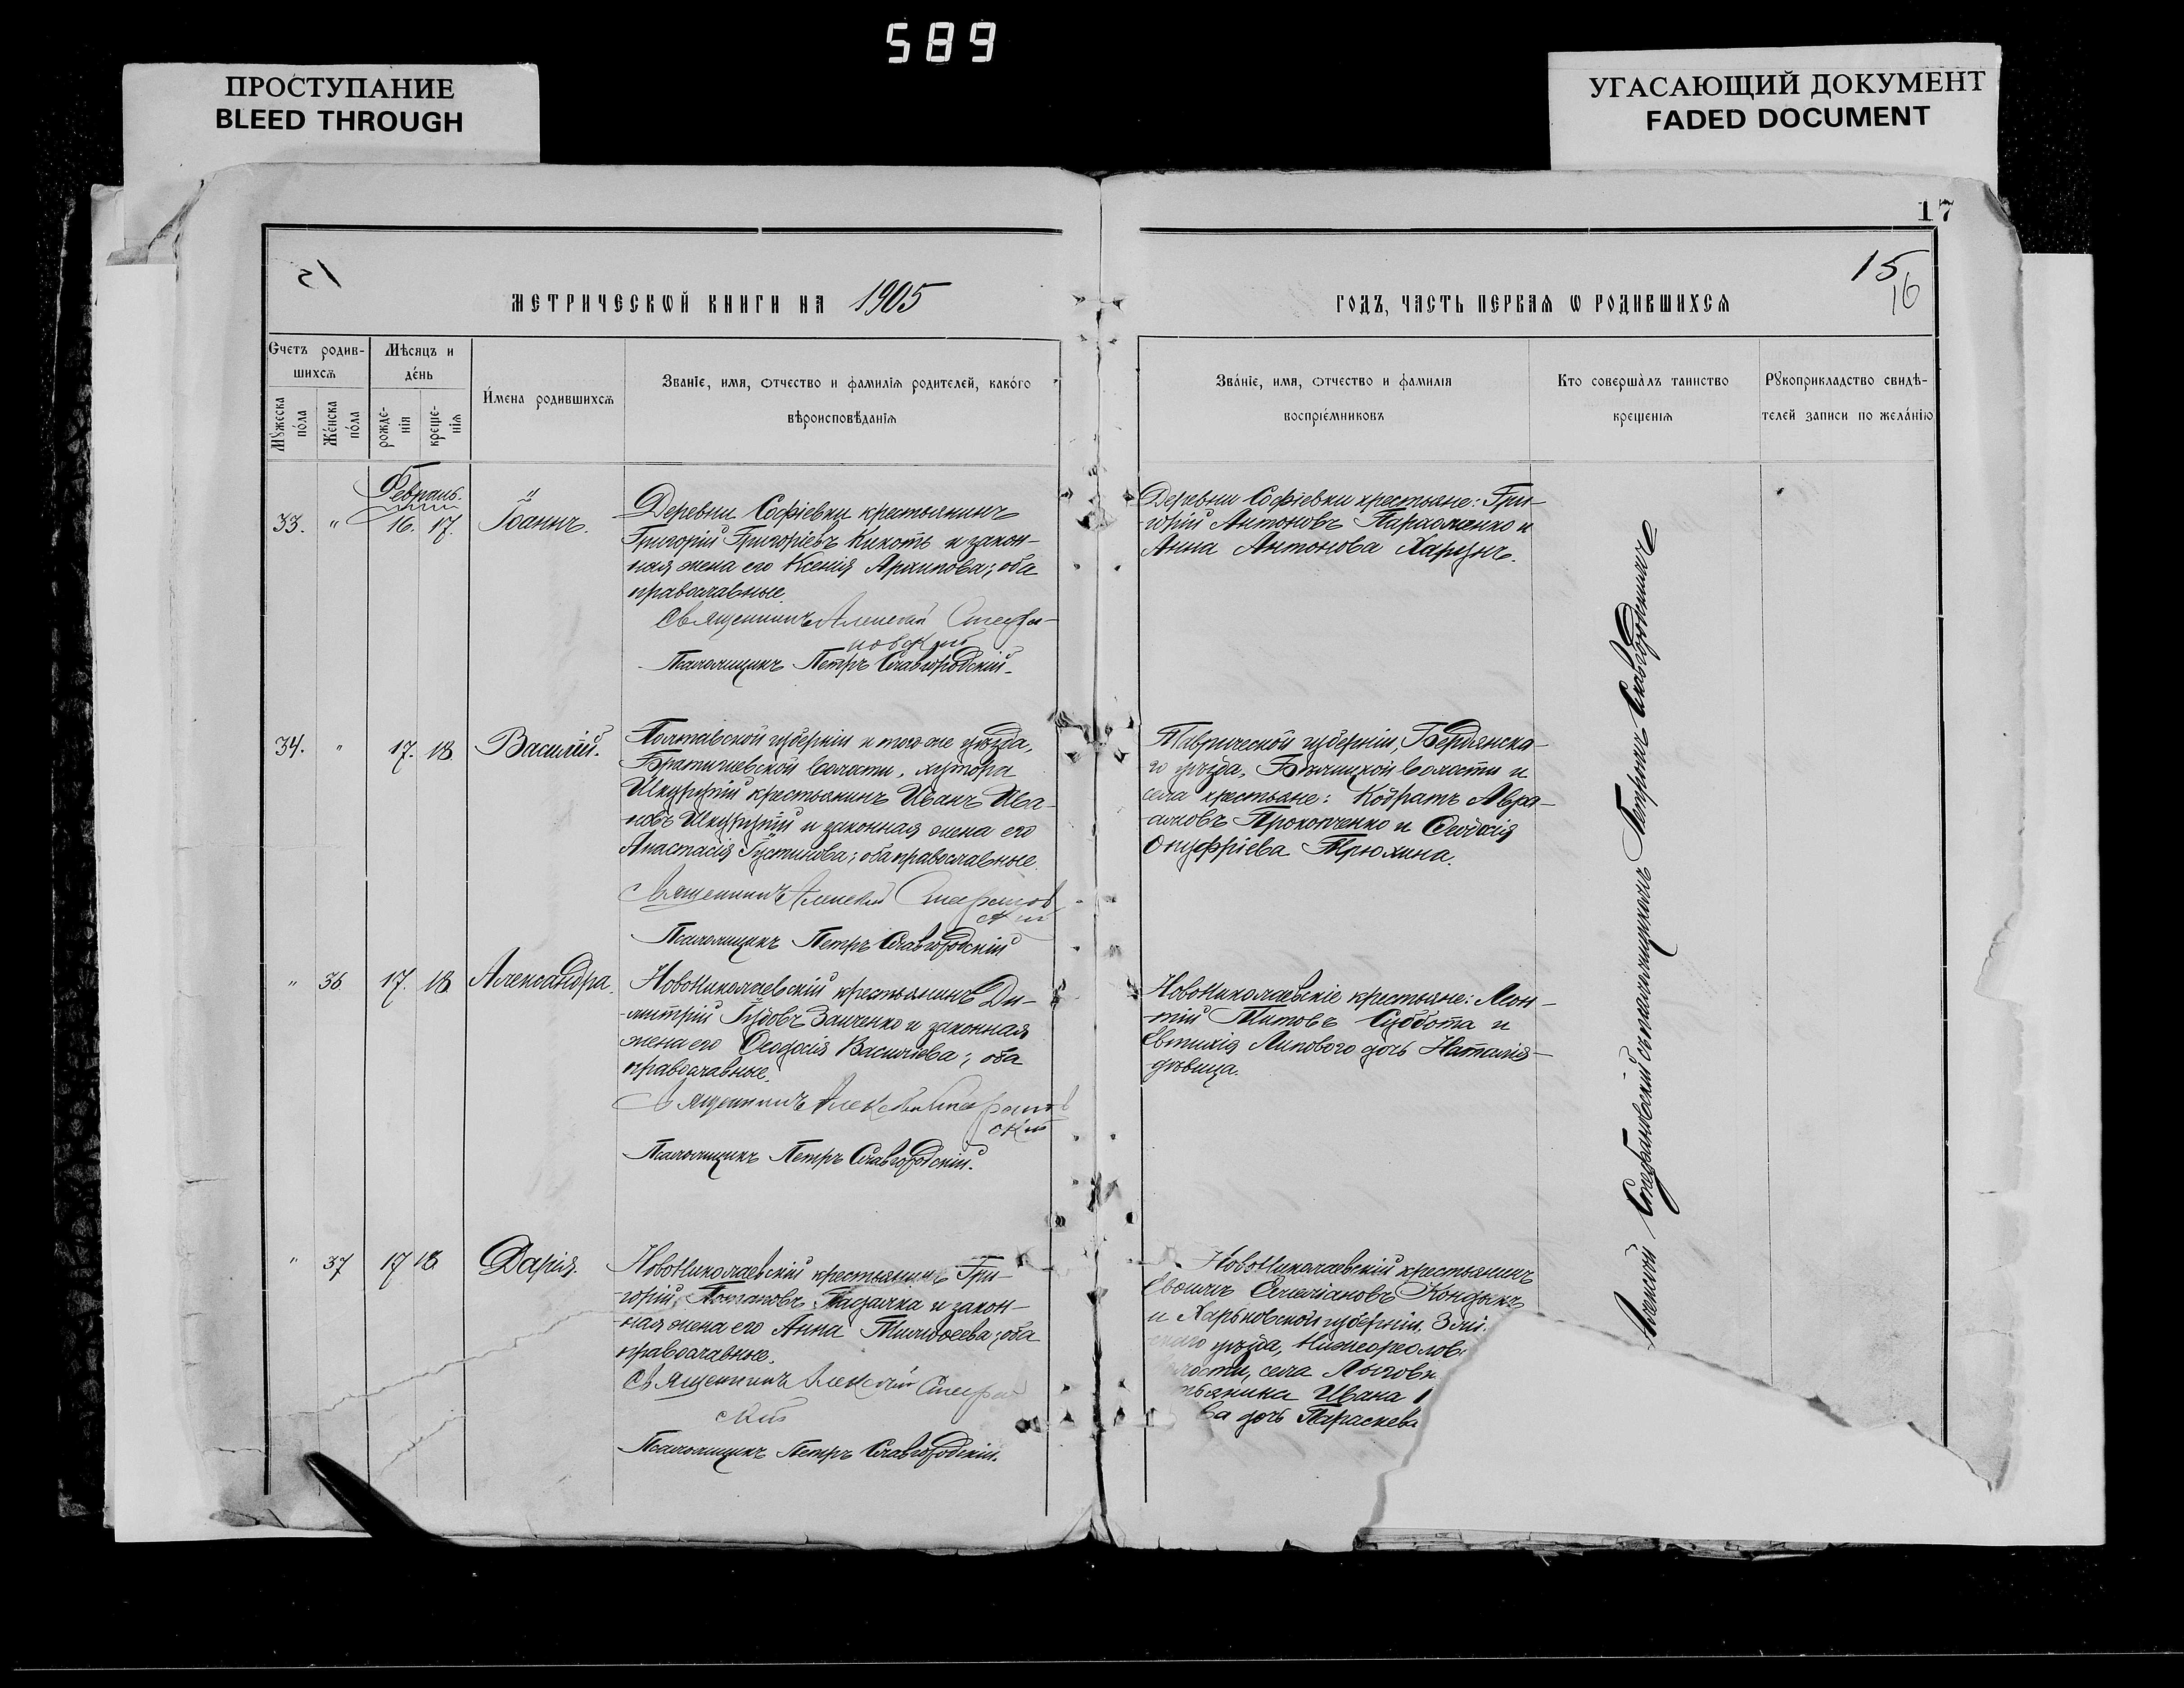 589
ПРОСТУПАНИЕ
BLEED THROUGH
УГАСАЮЩИЙ ДОКУМЕНТ
FADED DOCUMENT
17
15
15
16
МЕТРИЧЕСКѠЙ КНИГИ НА 1905
ГОДЪ, ЧАСТЬ ПЕРВАѦ Ѡ РОДИВШИХСѦ
Счетъ родив-
шихсѧ
Мꙋжеска
пола
Женска
пола
Мѣсяцъ и
день
рожде-
нія
креще-
нія
Имена родившихсѧ
Званіе, имя, отчество и фамиліѧ родителей, какого
вѣроисповѣданіѧ
Званіе, имя, отчество и фамилія
воспріемниковъ
Кто совершалъ таинство
крещенія
Рꙋкоприкладство свидѣ-
телей записи по желанію
Февраль.
33. " 16. 17. Іоаннъ.
Деревни Софіевки крестьянинъ
Григорій Григоріевъ Кикоть и закон-
ная жена его Ксенія Архипова; оба
православные.
Священникъ Алексій Стефа-
новскій
Псаломщикъ Петръ Славгородскій.
Деревни Софіевки крестьяне: Гри-
-горій Антоновъ Пархоменко и
Анна Антонова Харцызъ.
34. " 17. 18 Василій.
Полтавской губерніи и того-же уѣзда,
Братешевской волости, хутора
крестьянинъ Иванъ Ива-
-новъ и законная жена его
Анастасія Густинова; оба православные.
Священникъ Алексій Стефанов
скій
Псаломщикъ Петръ Славгородскій
Таврической губерніи, Бердянска-
го уѣзда, волости и
села крестьяне: Кодратъ Авра-
-амовъ Прокопченко и Феодосія
Онуфріева Трюхина.
" 36 17. 18 Александра.
Новониколаевскій крестьянинъ Ди-
-митрій Заиченко и законная
жена его Феодосія Васильева; оба
православные.
Священникъ Алексій Стефанов
скій
Псаломщикъ Петръ Славгородскій.
Новониколаевскіе крестьяне: Леон-
-тій Титовъ Суббота и
Евтихія Липового дочь Наталія-
дѣвица.
" 37 17 18 Дарія.
Новониколаевскій крестьянинъ Гри-
-горій и закон-
-ная жена его Анна Тимофеева; оба
православные.
Священникъ Алексій Стефан
скій
Псаломщикъ Петръ Славгородскій.
Новониколаевскій крестьянинъ
и Харьковской губерніи, Змі
уѣзда,
села
Ивана
ва дочь Параскева
Алексій Стефановскій съ псаломщикомъ Петромъ Славгородскимъ